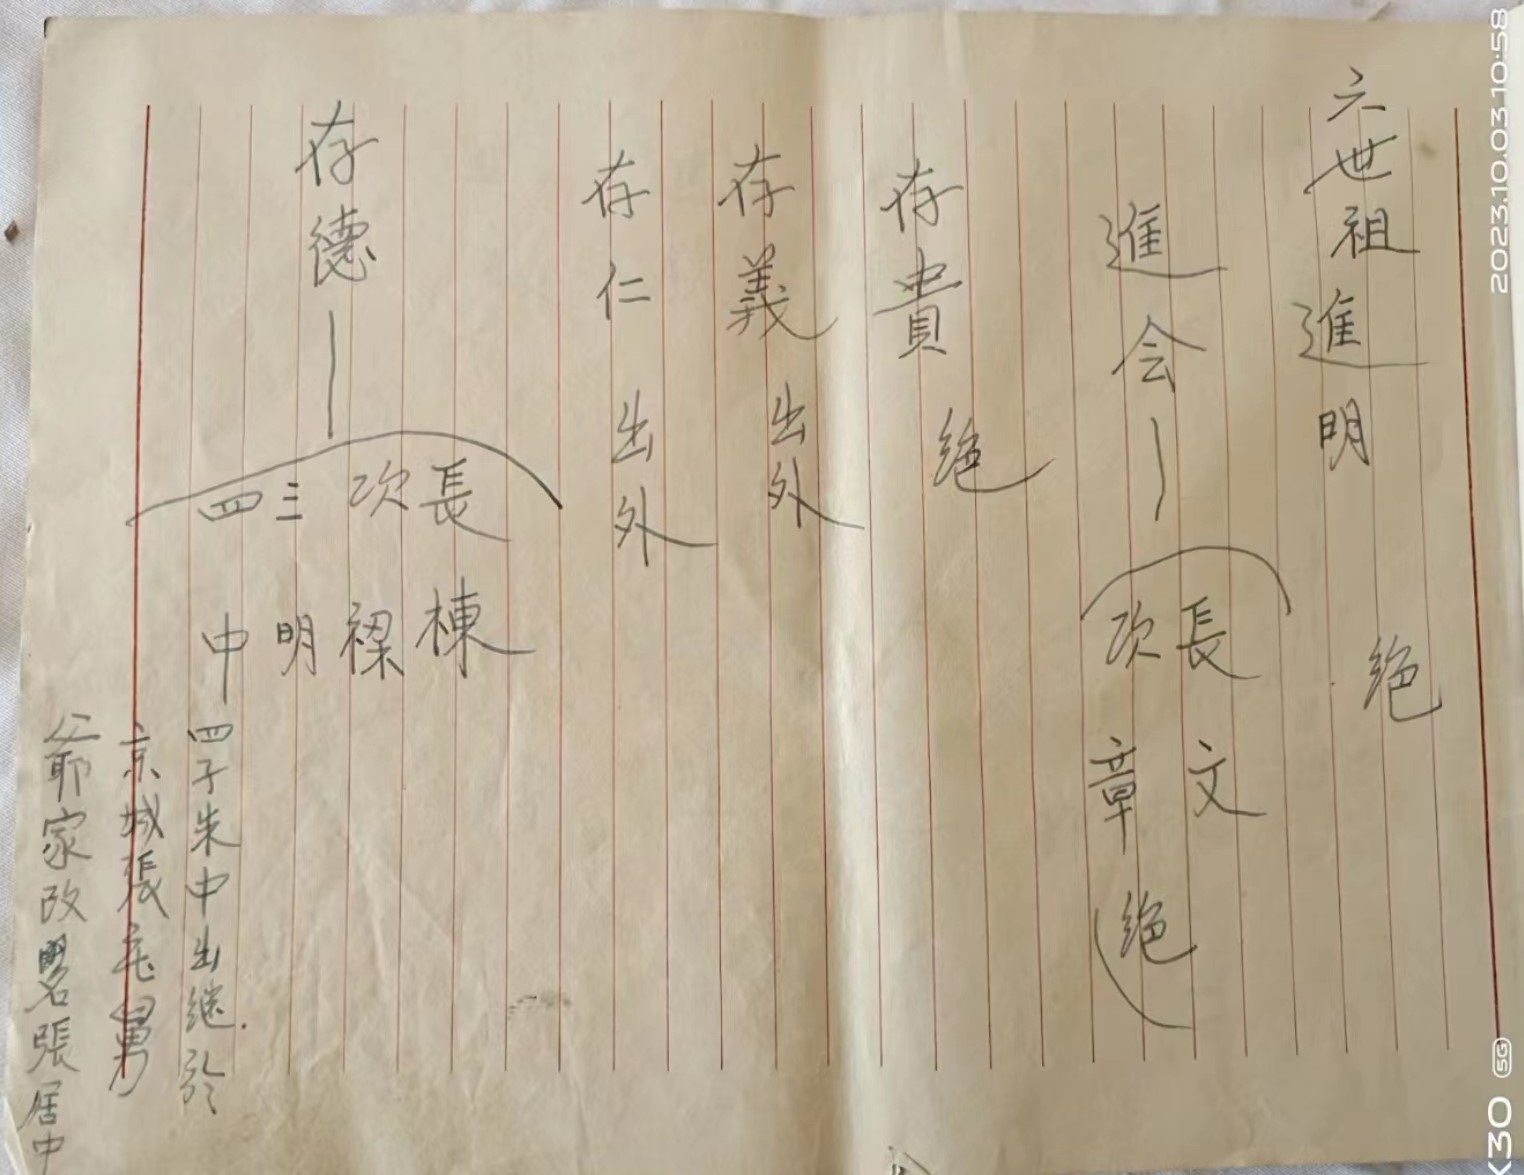 六世祖進明 绝
進会 長文 次章 绝
存貴 绝
存義 出外
存仁 出外
存德 長棟 次樑 三明 四中
四子朱中出继於
京城張 舅
爺家改 名張居中
2023.10.03 10:58
K30 5G